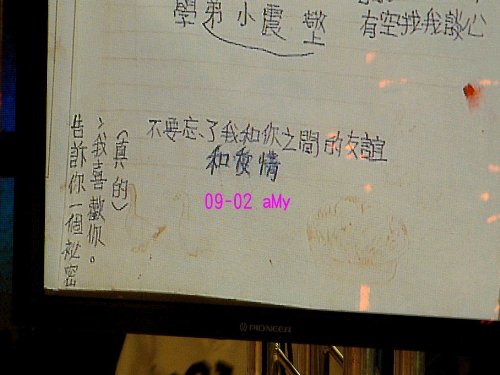 學弟小震 敬上
有空找我談心
不要忘了我和你之間的友誼
和愛情
告訴你一個祕密
，我喜歡你。
（真的）
09-02 aMy
PIONEER